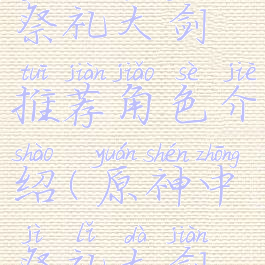 祭礼大剑
tuī jiàn jiǎo sè jiè
推荐角色介
shào yuán shén zhōng
绍(原神中
jì lǐ dà jiàn
祭礼大剑